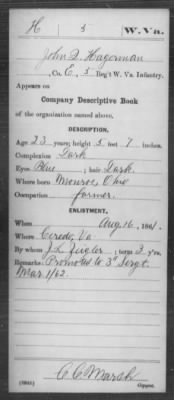 H 5 W. Va.
John D. Hagerman
, Co. E, 5 Reg't W. Va. Infantry.
Appears on
Company Descriptive Book
of the organization named above.
DESCRIPTION.
Age 23 years; height 5 feet 7 inches.
Complexion Dark
Eyes Blue; hair Dark.
Where born Monroe, Ohio
Occupation farmer.
ENLISTMENT.
When Aug. 16, 1861.
Where Ceredo, Va.
By whom J. L. Zeigler; term 3 y'rs.
Remarks: Promoted to 3" Sergt.
Mar. 1/62.
C. C. Marsh
Copyist.